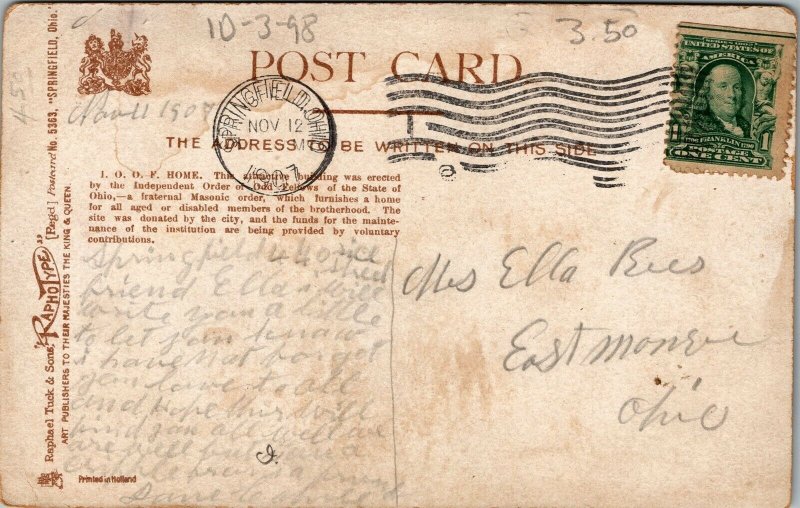 10-3-98
3.50
4.50
POST CARD
Nov 11 1907
SPRINGFIELD, OHIO
NOV 12
1907
UNITED STATES OF
AMERICA
FRANKLIN
1 1
ONE CENT
THE ADDRESS TO BE WRITTEN ON THIS SIDE
I. O. O. F. HOME. This attractive building was erected
by the Independent Order of Odd Fellows of the State of
Ohio,—a fraternal Masonic order, which furnishes a home
for all aged or disabled members of the brotherhood. The
site was donated by the city, and the funds for the mainte-
nance of the institution are being provided by voluntary
contributions.
Springfield
friend Ella will
write you a little
to let you know
i have not forgot
you love to all
and hope this will
find you all well we
are well
Mrs Ella Rees
East Monroe
Ohio
Raphael Tuck & Sons' "RAPHOTYPE" [Regd] Postcard No. 5363, "SPRINGFIELD, Ohio."
ART PUBLISHERS TO THEIR MAJESTIES THE KING & QUEEN.
Printed in Holland